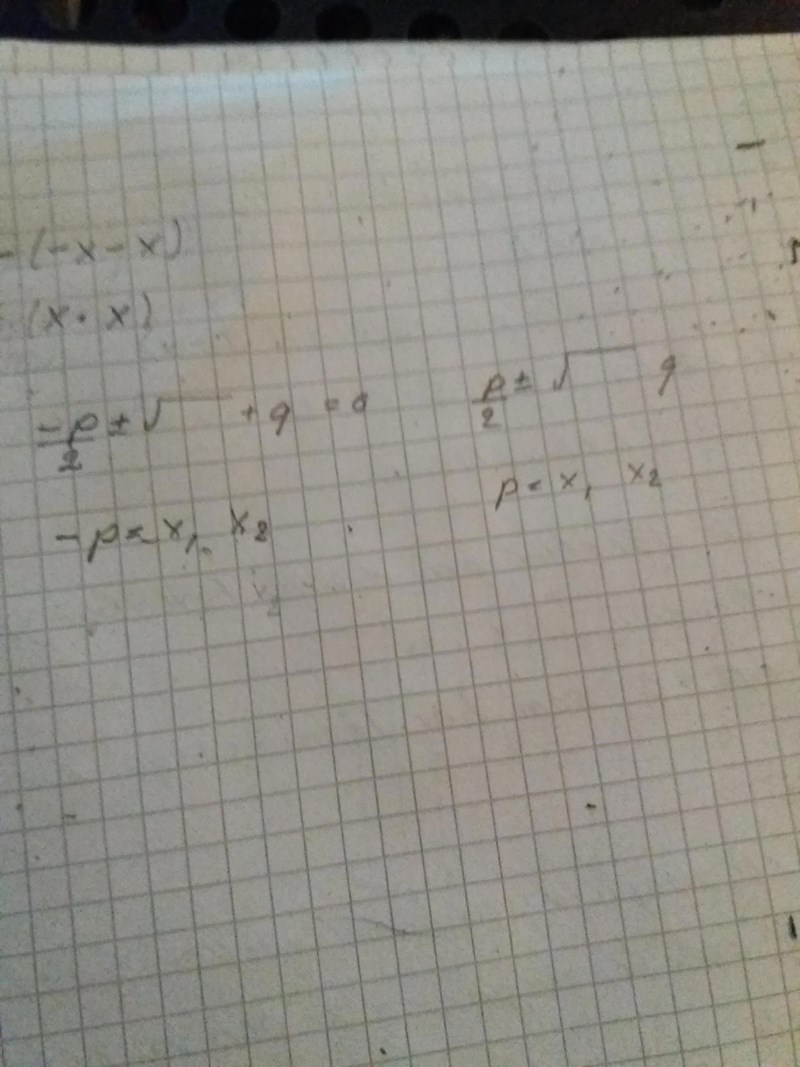 -(-x-x)
(x·x)
-p/2 ± √ + q = 0
p/2 ± √ q
-p = x₁ x₂
p = x₁ x₂